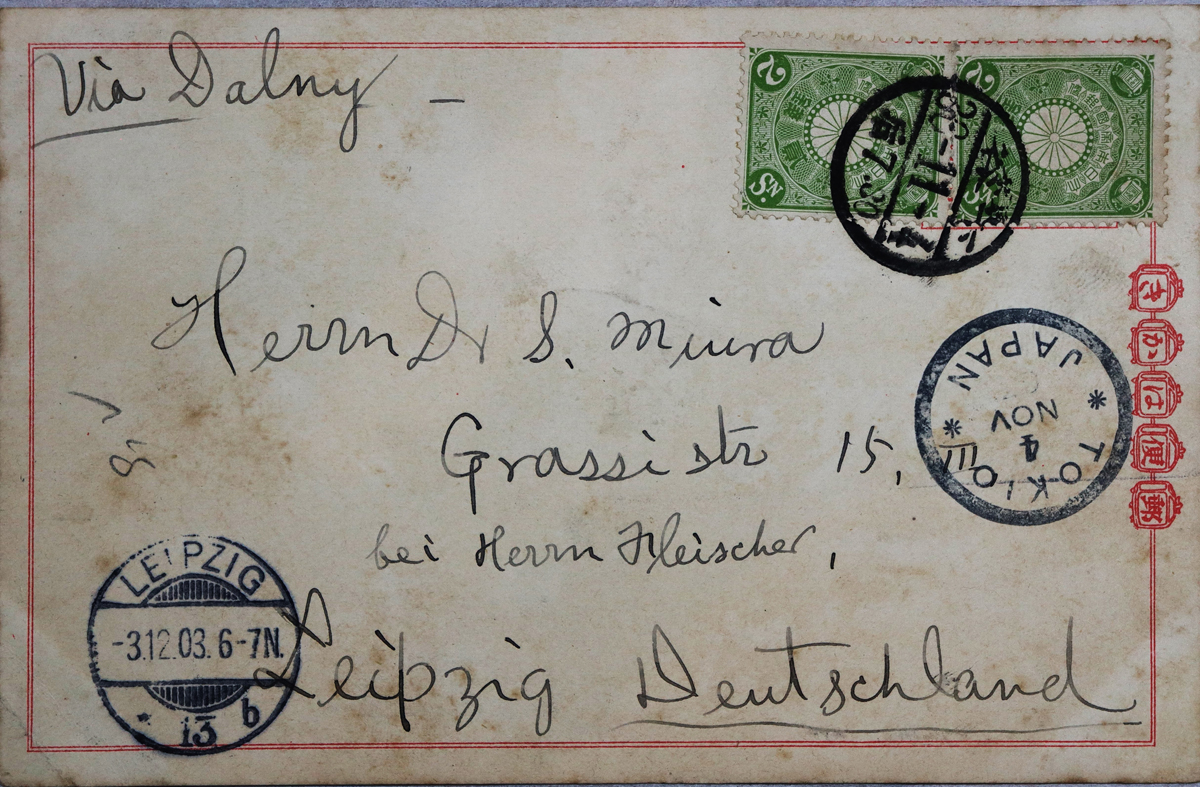 Via Dalny –
2
2
Sⁿ.
Herrn Dr S. Miura
Grassistr 15,
bei Herrn Fleischer,
Leipzig Deutschland
JAPAN
4
NOV
TOKIO
III
郵便はかき
LEIPZIG
-3.12.03. 6-7N.
* 13 b